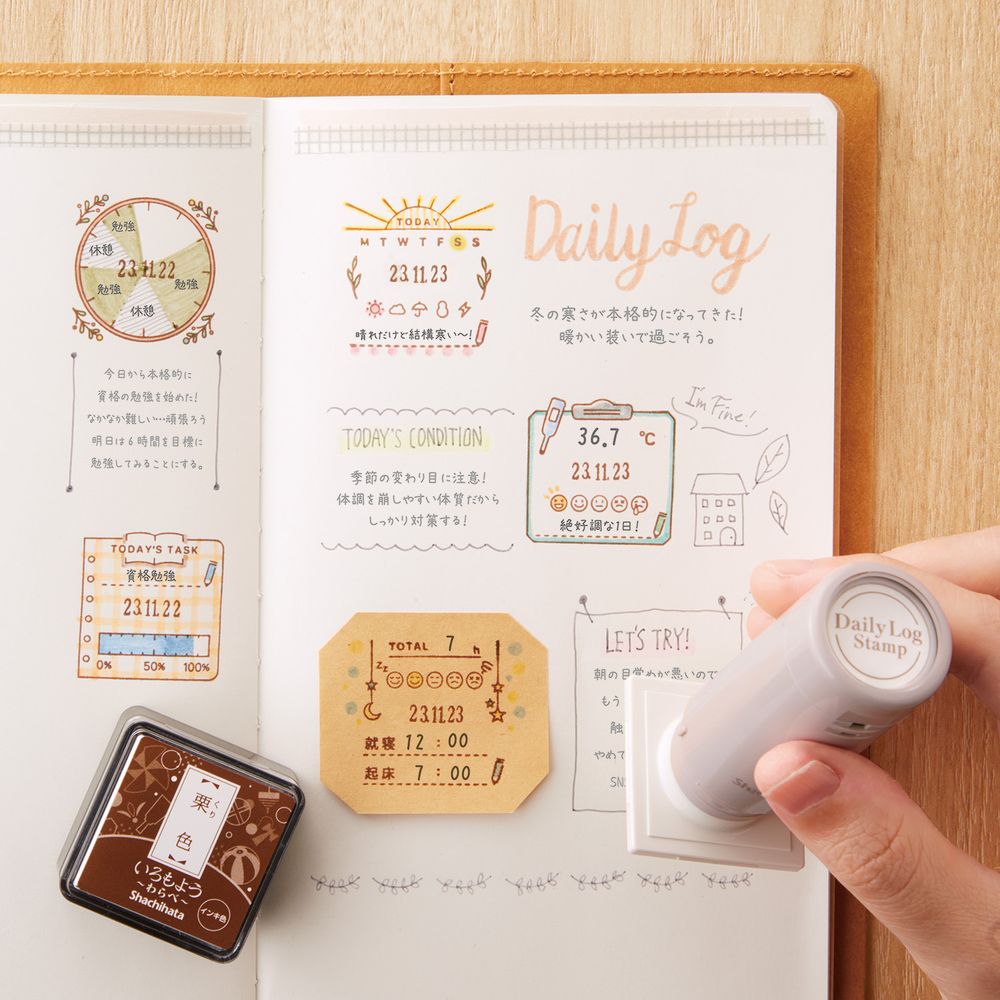 勉強
休憩
23.11.22
勉強
勉強
休憩
今日から本格的に
資格の勉強を始めた!
なかなか難しい…頑張ろう
明日は6時間を目標に
勉強してみることにする。
TODAY'S TASK
資格勉強
23.11.22
0% 50% 100%
TODAY
M T W T F S S
23.11.23
晴れだけど結構寒い〜!
Daily Log
冬の寒さが本格的になってきた!
暖かい装いで過ごそう。
TODAY'S CONDITION
季節の変わり目に注意!
体調を崩しやすい体質だから
しっかり対策する!
36.7 ℃
23.11.23
絶好調な1日!
I'm Fine!
TOTAL 7 h
zz
23.11.23
就寝 12:00
起床 7:00
LET'S TRY!
朝の目覚めが悪いので
もう
触
やめて
SN
Daily Log
Stamp
【栗色】
くり
いろもよう
〜わらべ〜
Shachihata
インキ色